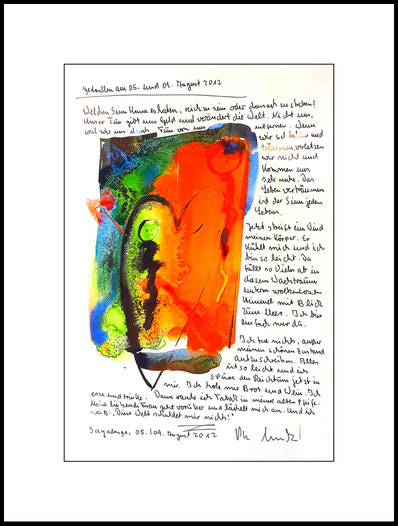 Gedanken am 05. und 09. August 2012
Welchen Sinn kann es haben, reich zu sein oder danach zu streben?
Unser Tun gibt uns Geld und verändert die Welt. Nicht uns,
weil wir uns durch Tun von uns entfernen. Wenn
wir so sind und
träumen, verletzen
wir nicht und
kommen uns
sehr nahe. Das
Leben verträumen
ist der Sinn jeden
Lebens.
Jetzt streift ein Wind
meinen Körper. Er
kühlt mich und ich
bin so leicht. Da
fällt so Vieles ab in
diesem Wachtraum
unterm wolkenlosen
Himmel mit Blick
zum Meer. Ich bin
einfach nur da.
Ich tue nichts, außer
meinen schönen Zustand
aufzuschreiben. Alles
ist so leicht und ich
spüre den Reichtum jetzt in
mir. Ich hole mir Brot und Wein. Ich
esse und trinke. Dann rauche ich Tabak in meiner alten Pfeife.
Meine liebende Frau geht vorüber und lächelt mich an. Und ich
weiß: "Diese Welt schuldet mir nichts!"
Sayalonga, 05./09. August 2012